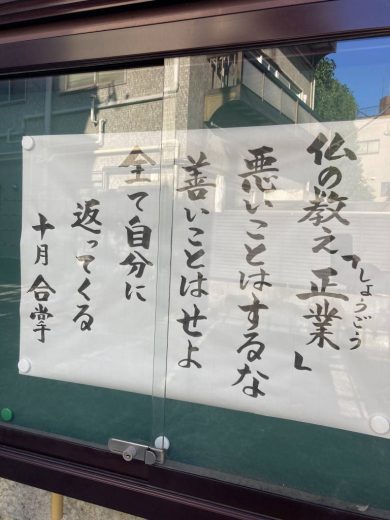 仏の教え「正業」
しょうごう
悪いことはするな
善いことはせよ
全て自分に
返ってくる
十月 合掌